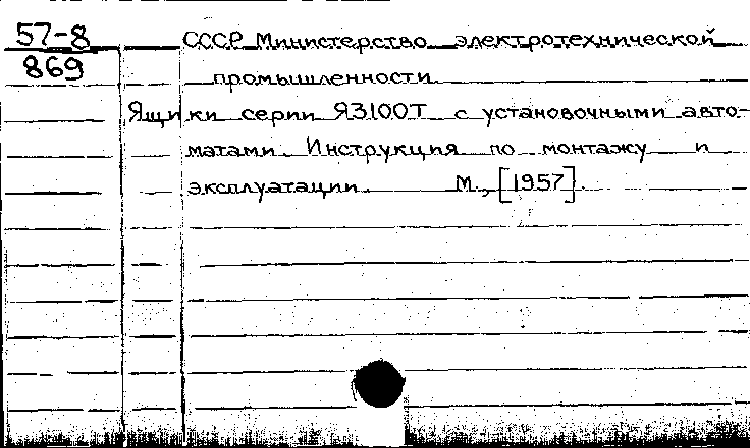 57-8
869
СССР Министерство электротехнической
промышленности.
Ящики серии Я3100Т с установочными авто-
матами. Инструкция по монтажу и
эксплуатации. М., [1957].